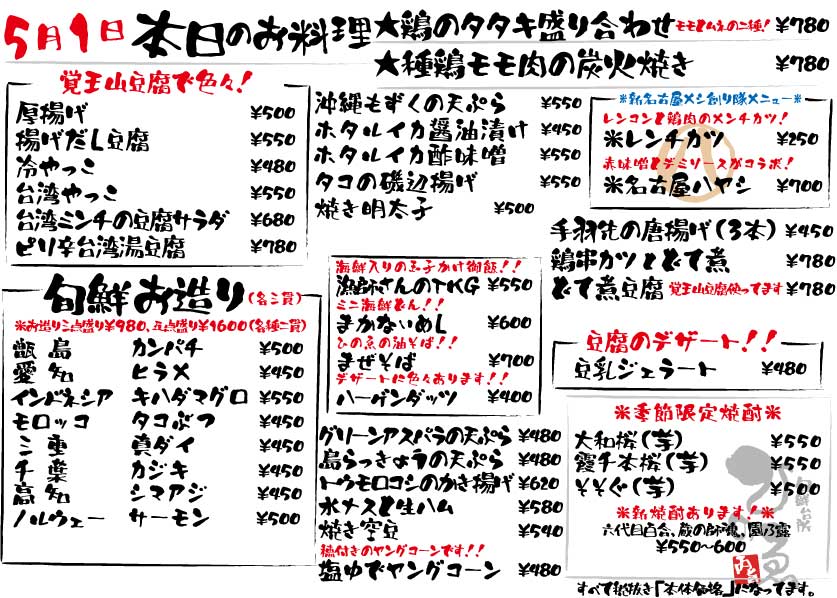 5月1日 本日のお料理
★鶏のタタキ盛り合わせ モモとムネの二種! ¥780
★種鶏モモ肉の炭火焼き ¥780
覚王山豆腐で色々!
厚揚げ ¥500
揚げだし豆腐 ¥550
冷やっこ ¥480
台湾やっこ ¥550
台湾ミンチの豆腐サラダ ¥680
ピリ辛台湾湯豆腐 ¥780
旬鮮お造り(各三貫)
※お造り三点盛り¥980、五点盛り¥1600(各種二貫)
甑島 カンパチ ¥500
愛知 ヒラメ ¥450
インドネシア キハダマグロ ¥550
モロッコ タコぶつ ¥450
三重 真ダイ ¥450
千葉 カジキ ¥450
高知 シマアジ ¥450
ノルウェー サーモン ¥500
沖縄もずくの天ぷら ¥550
ホタルイカ醤油漬け ¥450
ホタルイカ酢味噌 ¥550
タコの磯辺揚げ ¥550
焼き明太子 ¥500
海鮮入りの玉子かけ御飯!!
漁師さんのTKG ¥550
ミニ海鮮どん!!
まかないめし ¥600
ひの魚の油そば!!
まぜそば ¥700
デザートに色々あります!!
ハーゲンダッツ ¥400
グリーンアスパラの天ぷら ¥480
島らっきょうの天ぷら ¥480
トウモロコシのかき揚げ ¥620
水ナスと生ハム ¥580
焼き空豆 ¥540
穂付きのヤングコーンです!!
塩ゆでヤングコーン ¥480
※新名古屋メシ創り隊メニュー※
レンコンと鶏肉のメンチカツ!
※レンチカツ ¥250
赤味噌とデミソースがコラボ!
※名古屋ハヤシ ¥700
手羽先の唐揚げ(3本) ¥450
鶏串カツとどて煮 ¥780
どて煮豆腐 覚王山豆腐使ってます ¥780
豆腐のデザート!!
豆乳ジェラート ¥480
※季節限定焼酎※
大和桜(芋) ¥550
霞千本桜(芋) ¥550
そそぐ(芋) ¥500
※新焼酎あります!※
六代目百合、蔵の師魂、園乃露
¥550~600
すべて税抜き「本体価格」になってます。